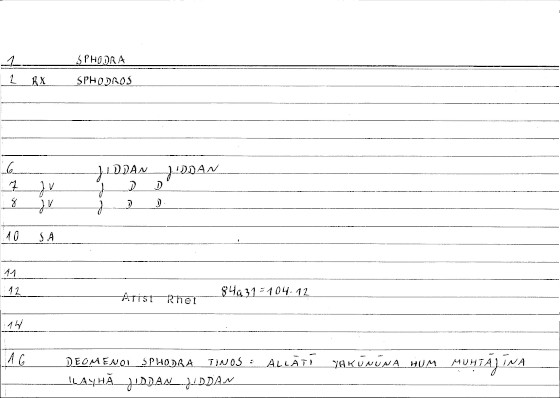 1 SPHODRA
2 RX SPHODROS
6 ǦIDDAN ǦIDDAN
7 ǦV Ǧ D D
8 ǦV Ǧ D D
10 SA
11
12 Arist Rhet 84a31=104.12
14
16 DEOMENOI SPHODRA TINOS = ALLĀTĪ YAKŪNŪNA HUM MUHTĀǦĪNA
ILAYHĀ ǦIDDAN ǦIDDAN